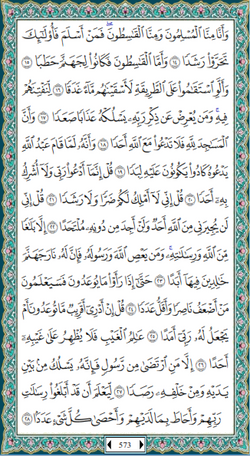 وَأَنَّا مِنَّا ٱلْمُسْلِمُونَ وَمِنَّا ٱلْقَٰسِطُونَ ۖ فَمَنْ أَسْلَمَ فَأُو۟لَٰٓئِكَ
تَحَرَّوْا۟ رَشَدًا ١٤ وَأَمَّا ٱلْقَٰسِطُونَ فَكَانُوا۟ لِجَهَنَّمَ حَطَبًا ١٥
وَأَلَّوِ ٱسْتَقَٰمُوا۟ عَلَى ٱلطَّرِيقَةِ لَأَسْقَيْنَٰهُم مَّآءً غَدَقًا ١٦ لِّنَفْتِنَهُمْ
فِيهِ ۚ وَمَن يُعْرِضْ عَن ذِكْرِ رَبِّهِۦ يَسْلُكْهُ عَذَابًا صَعَدًا ١٧ وَأَنَّ
ٱلْمَسَٰجِدَ لِلَّهِ فَلَا تَدْعُوا۟ مَعَ ٱللَّهِ أَحَدًا ١٨ وَأَنَّهُۥ لَمَّا قَامَ عَبْدُ ٱللَّهِ
يَدْعُوهُ كَادُوا۟ يَكُونُونَ عَلَيْهِ لِبَدًا ١٩ قُلْ إِنَّمَآ أَدْعُوا۟ رَبِّى وَلَآ أُشْرِكُ
بِهِۦٓ أَحَدًا ٢٠ قُلْ إِنِّى لَآ أَمْلِكُ لَكُمْ ضَرًّا وَلَا رَشَدًا ٢١ قُلْ إِنِّى
لَن يُجِيرَنِى مِنَ ٱللَّهِ أَحَدٌ وَلَنْ أَجِدَ مِن دُونِهِۦ مُلْتَحَدًا ٢٢ إِلَّا بَلَٰغًا
مِّنَ ٱللَّهِ وَرِسَٰلَٰتِهِۦ ۚ وَمَن يَعْصِ ٱللَّهَ وَرَسُولَهُۥ فَإِنَّ لَهُۥ نَارَ جَهَنَّمَ
خَٰلِدِينَ فِيهَآ أَبَدًا ٢٣ حَتَّىٰٓ إِذَا رَأَوْا۟ مَا يُوعَدُونَ فَسَيَعْلَمُونَ
مَنْ أَضْعَفُ نَاصِرًا وَأَقَلُّ عَدَدًا ٢٤ قُلْ إِنْ أَدْرِىٓ أَقَرِيبٌ مَّا تُوعَدُونَ أَمْ
يَجْعَلُ لَهُۥ رَبِّىٓ أَمَدًا ٢٥ عَٰلِمُ ٱلْغَيْبِ فَلَا يُظْهِرُ عَلَىٰ غَيْبِهِۦٓ
أَحَدًا ٢٦ إِلَّا مَنِ ٱرْتَضَىٰ مِن رَّسُولٍ فَإِنَّهُۥ يَسْلُكُ مِنۢ بَيْنِ
يَدَيْهِ وَمِنْ خَلْفِهِۦ رَصَدًا ٢٧ لِّيَعْلَمَ أَن قَدْ أَبْلَغُوا۟ رِسَٰلَٰتِ
رَبِّهِمْ وَأَحَاطَ بِمَا لَدَيْهِمْ وَأَحْصَىٰ كُلَّ شَىْءٍ عَدَدًۢا ٢٨
573